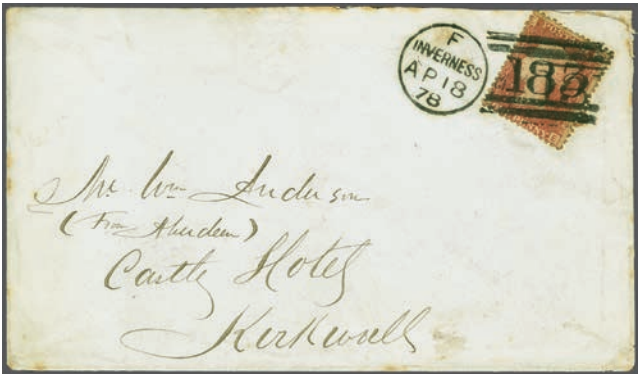 F
INVERNESS
AP 18
78
183
Mr. Wm Anderson
(From Aberdeen)
Castle Hotel
Kirkwall